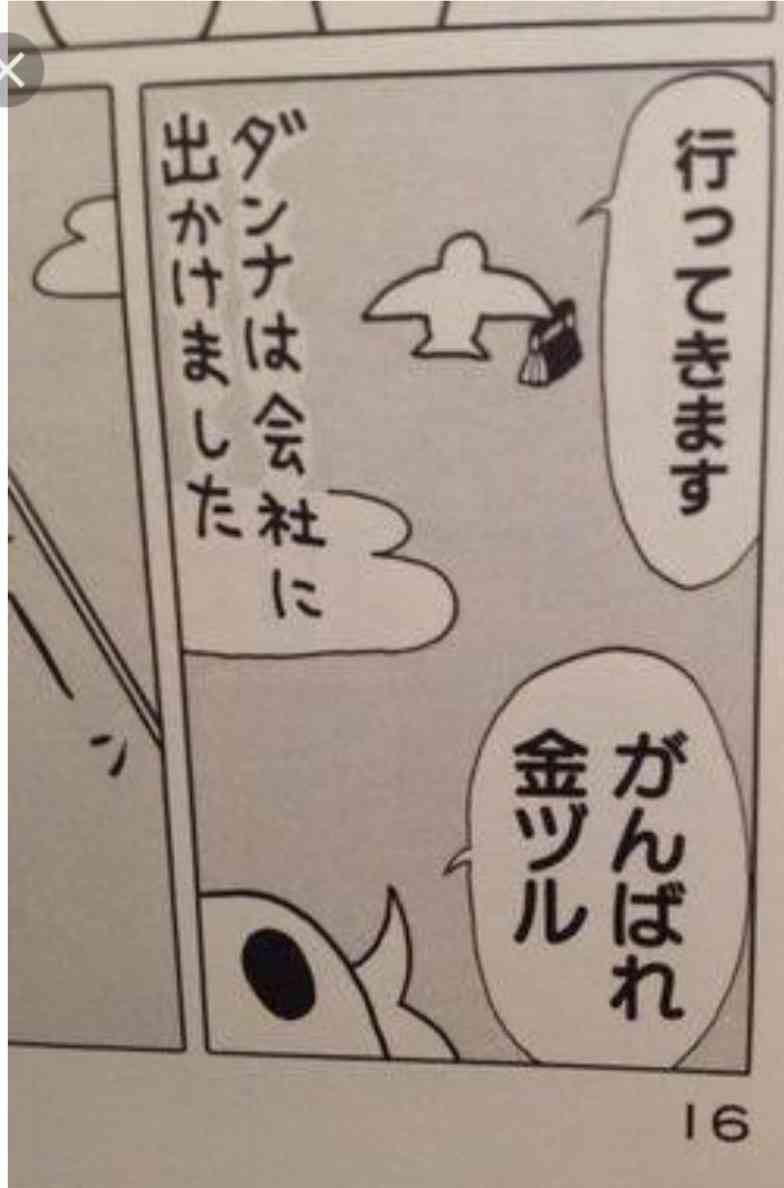 行ってきます
ダンナは会社に
出かけました
がんばれ
金ヅル
16